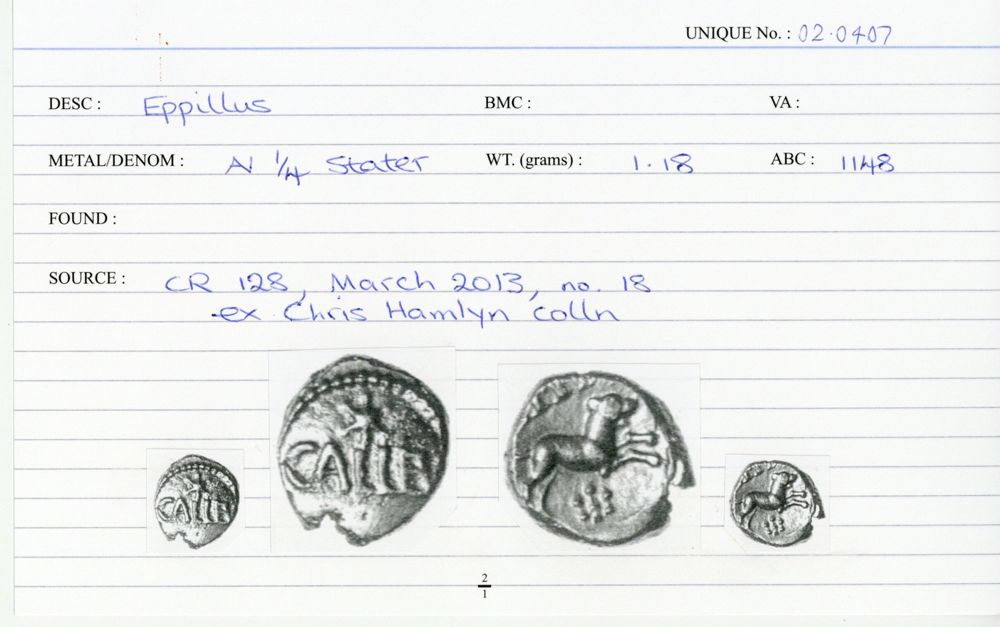 UNIQUE No. : 02·0407
DESC : Eppillus BMC : VA :
METAL/DENOM : AV 1/4 Stater WT. (grams) : 1·18 ABC : 1148
FOUND :
SOURCE : CR 128, March 2013, no. 18
ex Chris Hamlyn colln
2
1